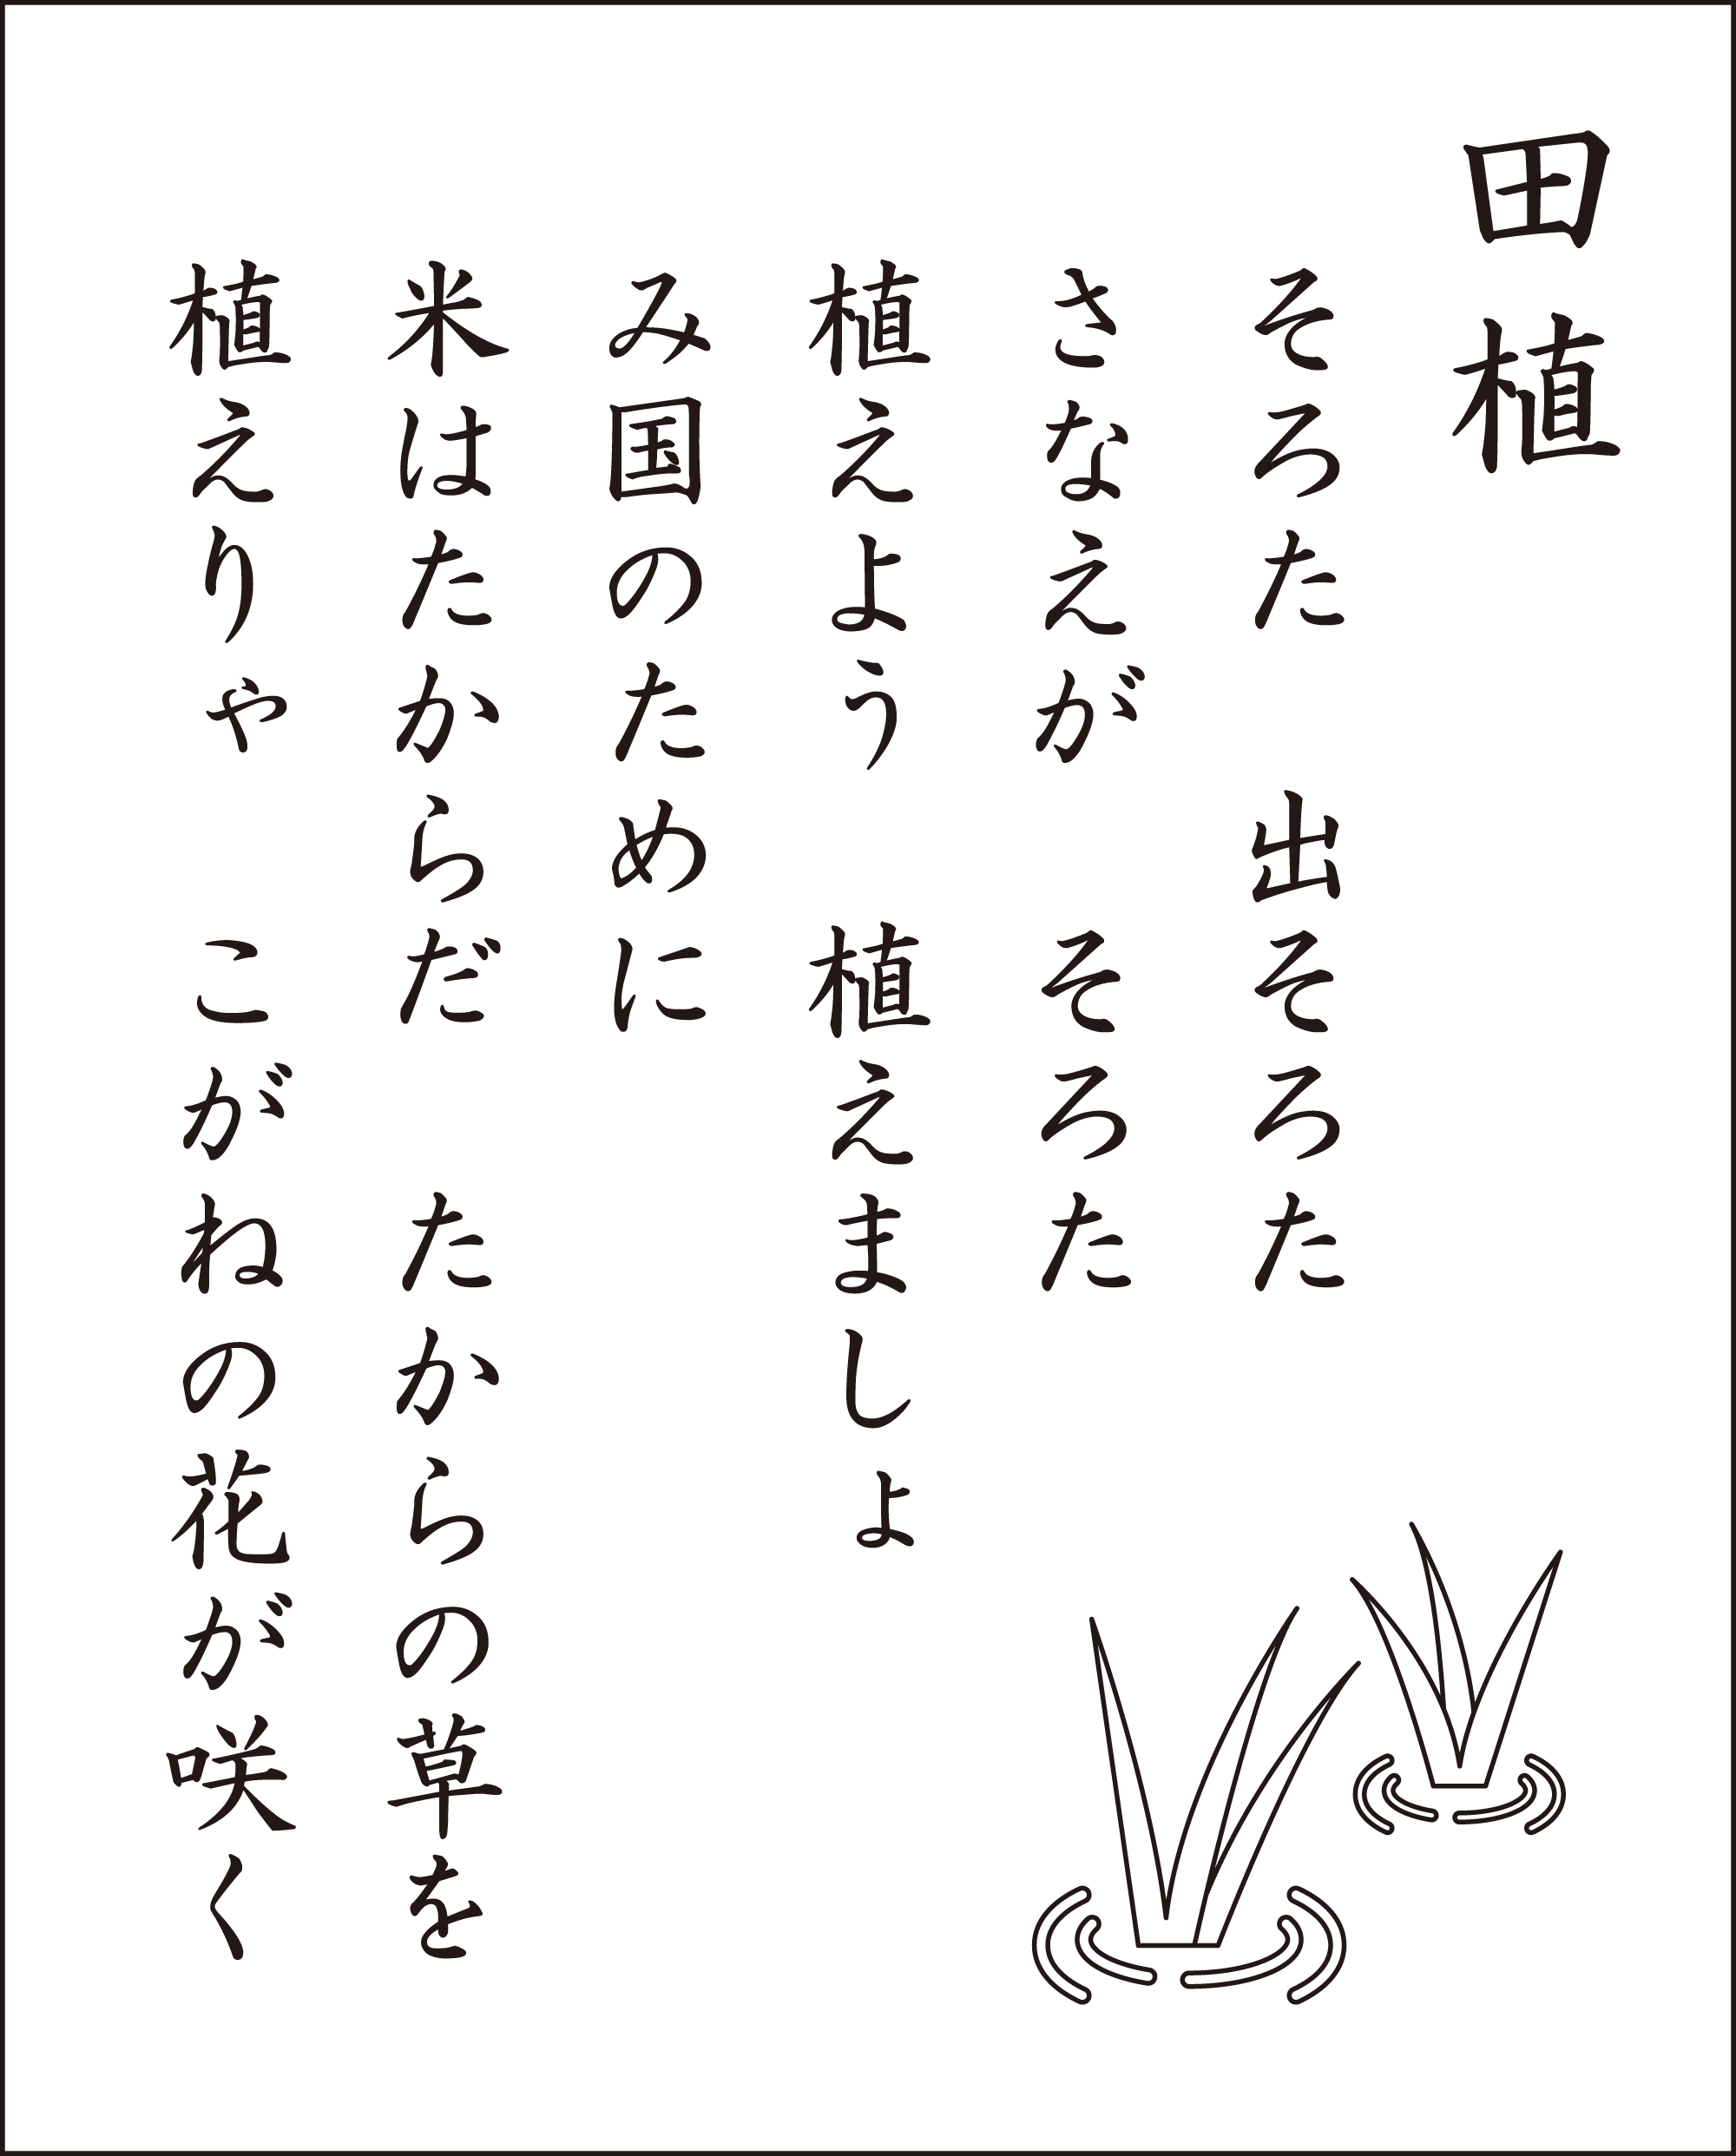 田植
そろた　出そろた
さなえが　そろた
植えよう　植えましょ
み国のために
米はたからだ　たからの草を
植えりゃ　こがねの花が咲く